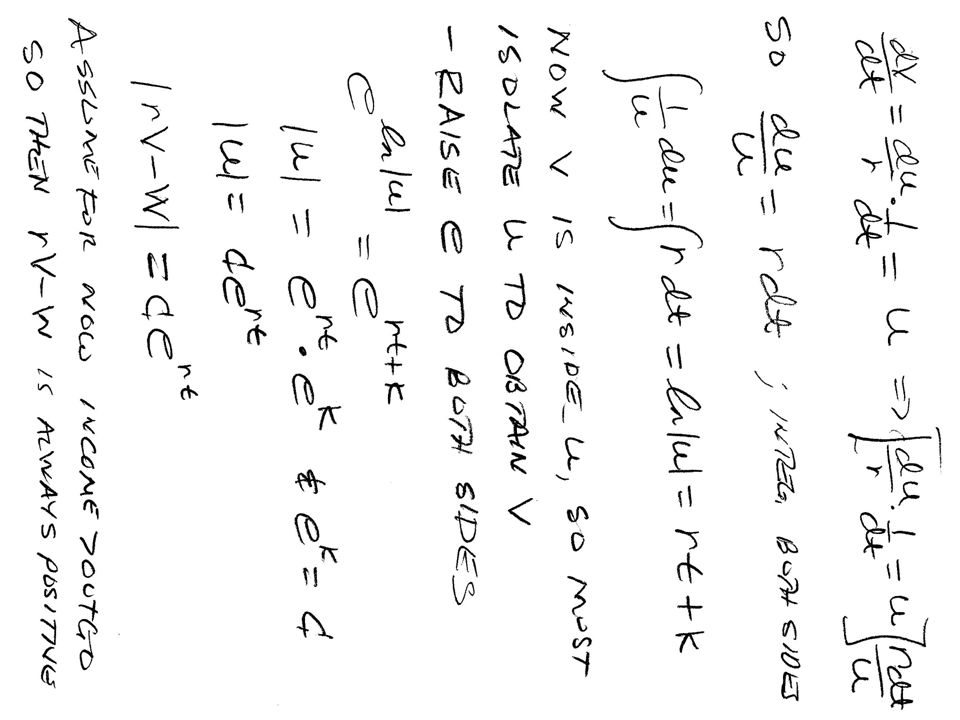 dV/dt = du/r · 1/dt = u => [du/r · 1/dt = u] rdt/u
SO du/u = rdt ; INTEG. BOTH SIDES
∫ 1/u du = ∫ r dt = ln|u| = rt + k
NOW V IS INSIDE u, SO MUST
ISOLATE u TO OBTAIN V
- RAISE e TO BOTH SIDES
e^ln|u| = e^rt+k
|u| = e^rt · e^k & e^k = ¢
|u| = ¢e^rt
|rV-W| = ¢e^rt
ASSUME FOR NOW INCOME > OUTGO
SO THEN rV-W IS ALWAYS POSITIVE